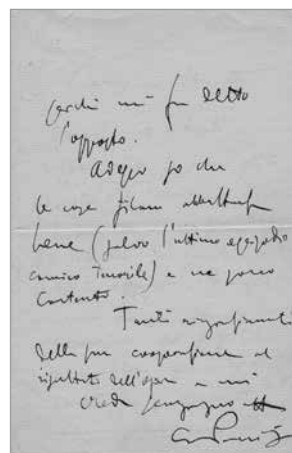 perchè mi fu detto
l'opposto.
Adesso so che
le cose filano abbastanza
bene (salvo l'ultimo episodio
comico Tmorile) e ne sono
contento.
Tanti ringraziamenti
della sua cooperazione al
risultato dell'opera e mi
creda sempre